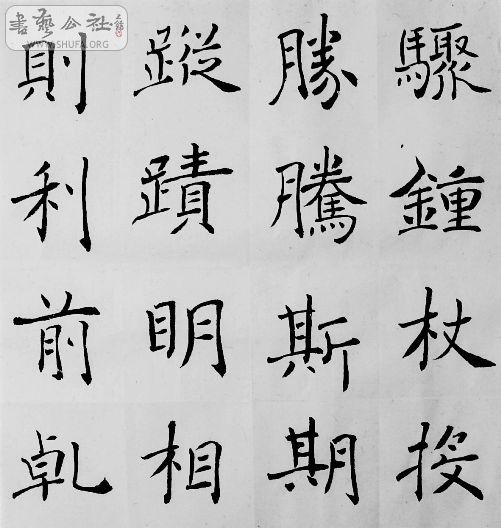 書藝公社
WWW.SHUFA.ORG
驟鍾杖投
勝騰斯期
蹤蹟眀相
則利前乹